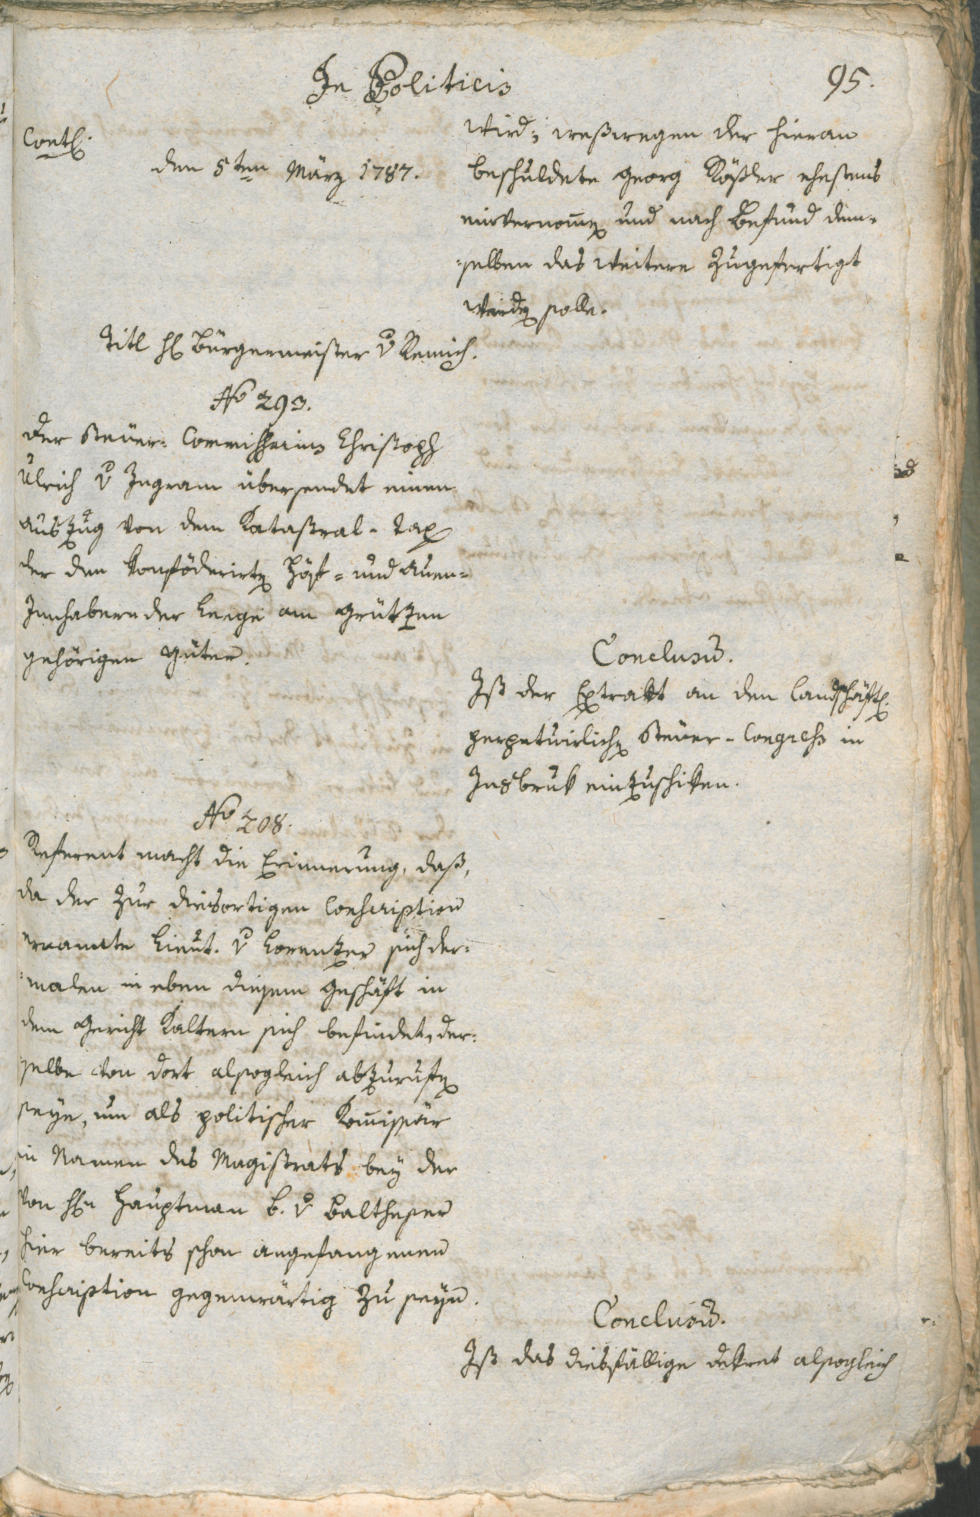 In Politicis
95.
Contl.
den 5ten März 1787.
Titl H. Bürgermeister v Remich.
No 293.
Der Steuer-Commissarius Christoph
Ulrich v Ingram übersendet einen
Auszug von dem Katastral-Tax
der den konföderirten Höf- und Auen-
Innhabern der Leege am Grützen
gehörigen Güter.
No 208.
Referent macht die Erinnerung, daß,
da der zur diesortigen Conscription
ernannte Lieut. v Lorenzer sich der-
malen in eben diesem Geschäft in
dem Gericht Kaltern sich befindet, der-
selbe von dort alsogleich abzurufen
seye, um als politischer Kommissär
in Namen des Magistrats bey der
von H. Hauptman B. v Baltheser
hier bereits schon angefangenen
Conscription gegenwärtig zu seyn.
wird; weßwegen der hieran
beschuldete Georg Kößler ehestens
einvernommen und nach Befund dem-
selben das Weitere zugefertigt
werden solle.
Conclusum.
Ist der Extrakt an den landschäftl.
perpetuirlichen Steuer-Congress in
Insbruk einzuschiken.
Conclusum.
Ist das diesfällige Dekret alsogleich